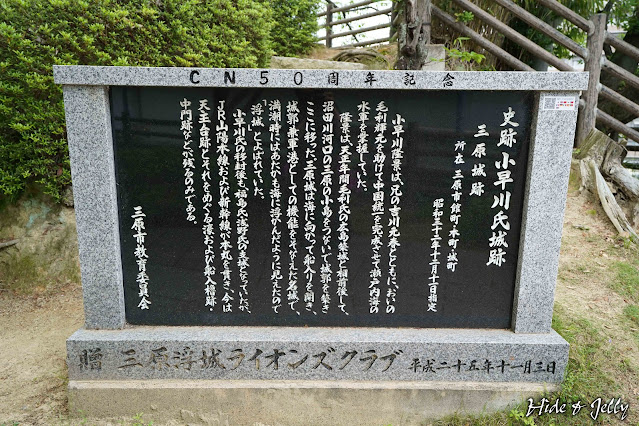 CN50周年記念
史跡 小早川氏城跡
三原城跡
所在 三原市館町・本町・城町
昭和三十二年十二月十八日指定
小早川隆景は、兄の吉川元春とともに、おいの
毛利輝元を助けて中国統一を完成させて瀬戸内海の
水軍を掌握していた。
隆景は、天正年間毛利氏の広島築城と相前後して、
沼田川河口の三原の小島をつないで城郭を築き
ここに移った。三原城は海に向かって船入りを開き、
城郭兼軍港としての機能をそなえた名城で、
満潮時にはあたかも海に浮かんだように見えたので
「浮城」とよばれていた。
小早川氏の移封後も、福島氏、浅野氏の支城となっていたが、
JR山陽本線および新幹線が本丸を貫き、今は
天主台跡とそれをめぐる濠および船入櫓跡・
中門跡などが残るのみである。
三原市教育委員会
贈 三原浮城ライオンズクラブ 平成二十五年十一月三日
Hide & Jelly